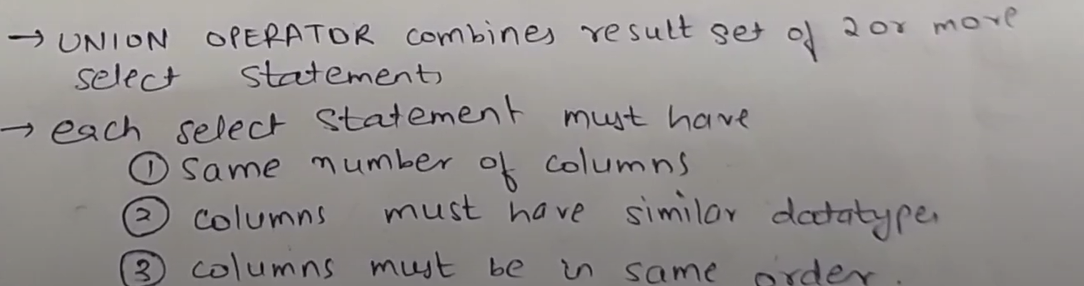 → UNION OPERATOR combines result set of 2 or more
select statements
→ each select statement must have
① same number of columns
② columns must have similar datatypes
③ columns must be in same order.